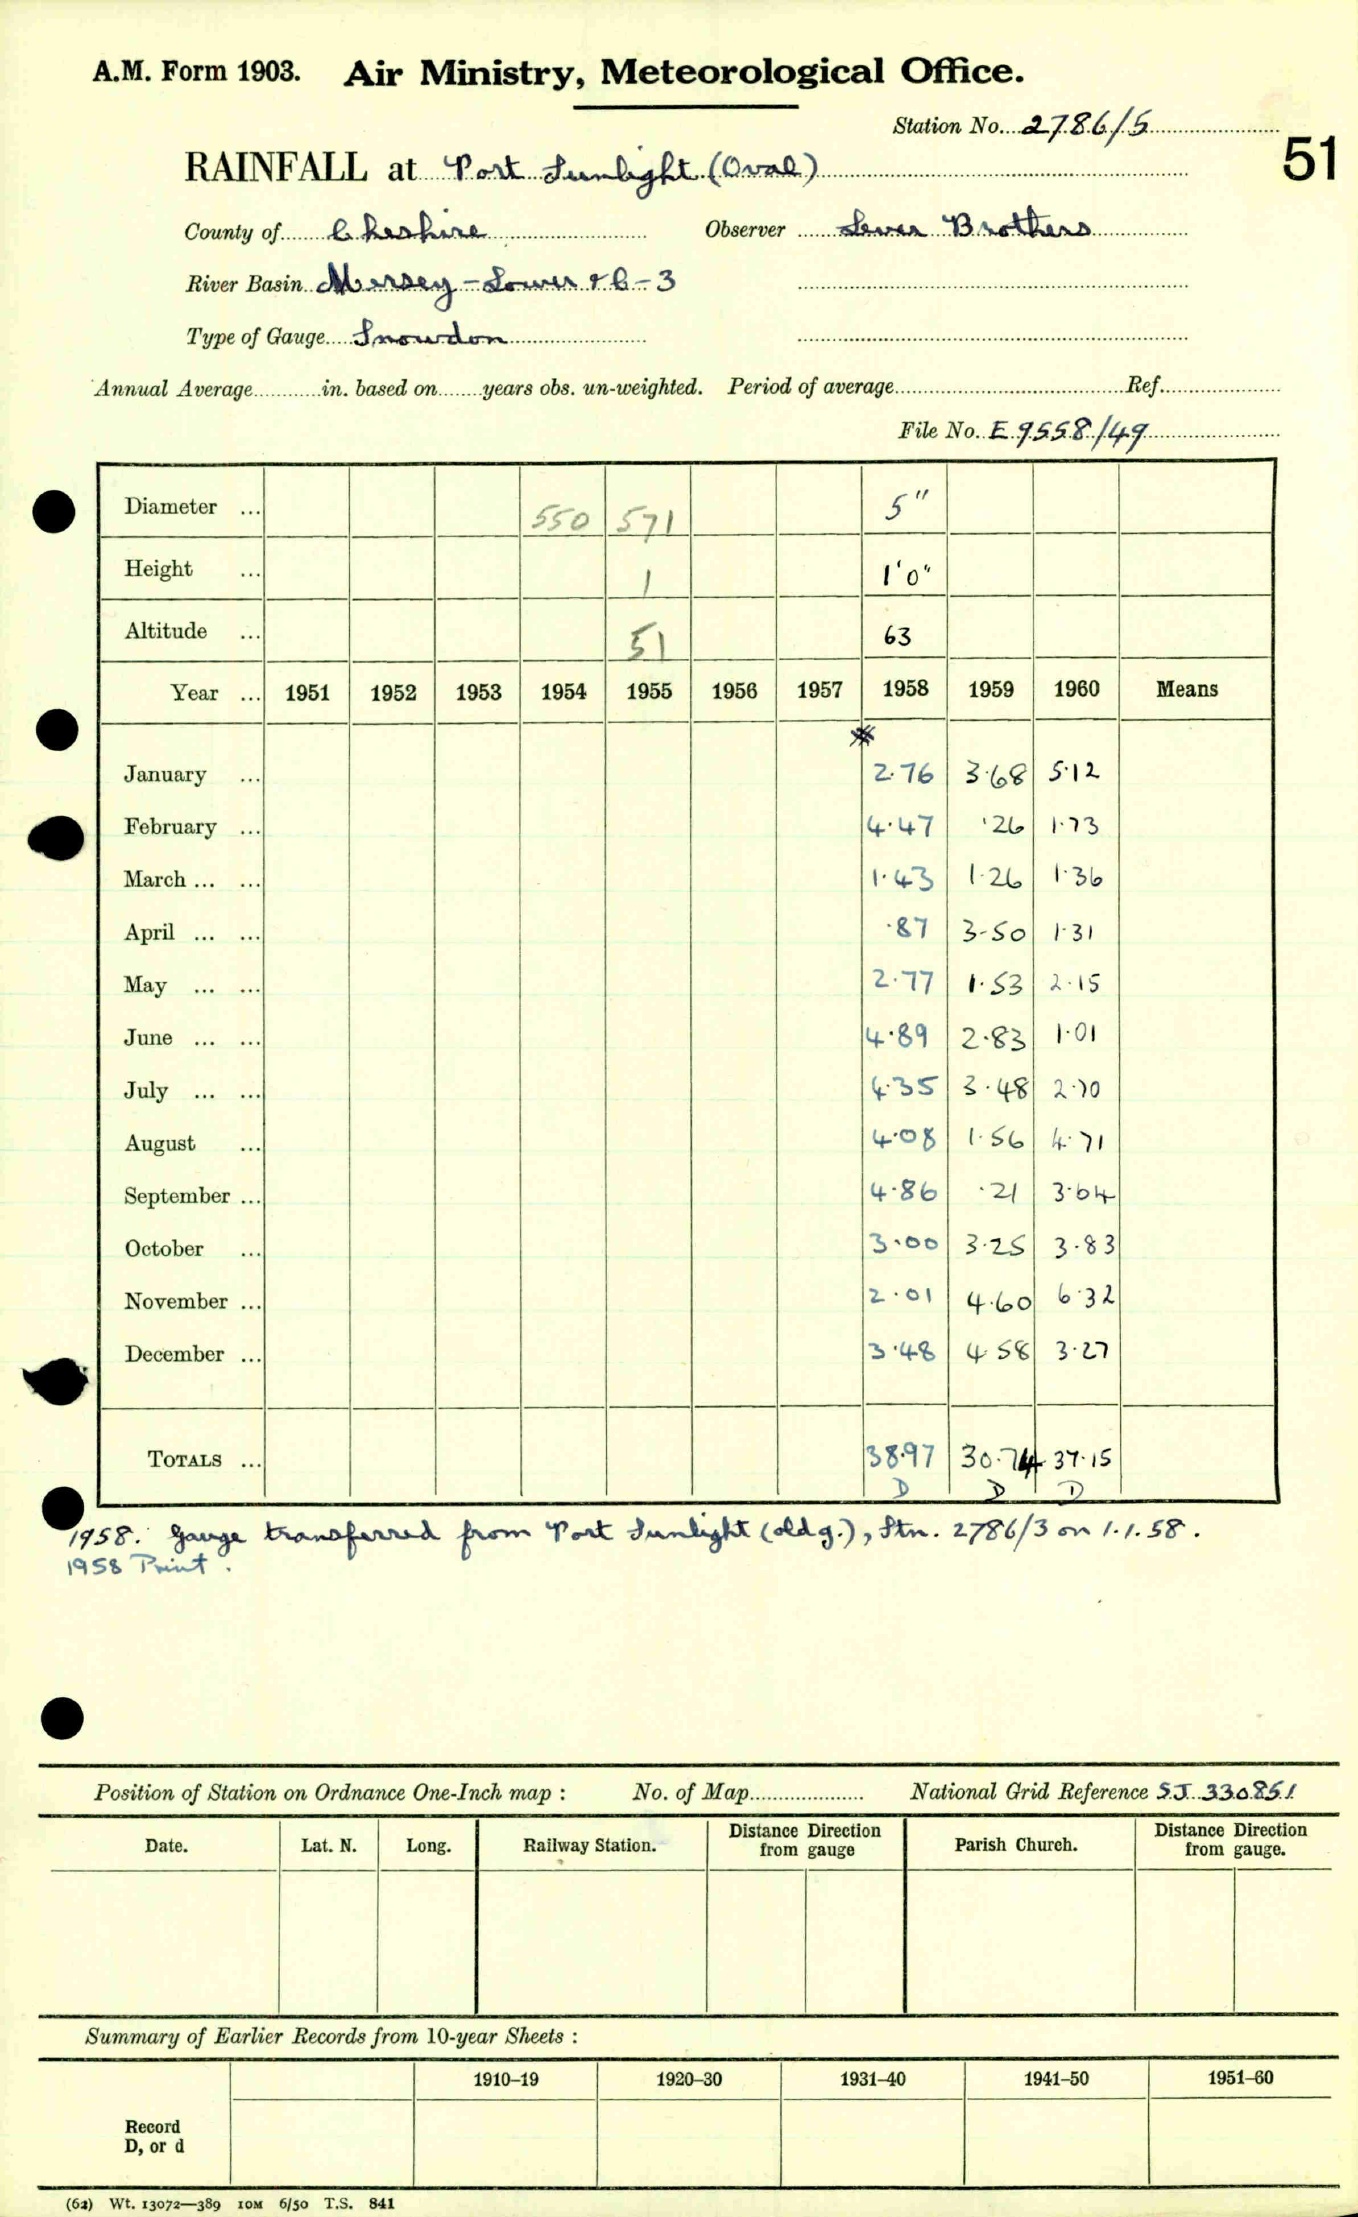 A.M. Form 1903. Air Ministry, Meteorological Office.
Station No. 2786/5
51
RAINFALL at Port Sunlight (Oval)
County of Cheshire Observer Lever Brothers
River Basin Mersey - Lower & C-3
Type of Gauge Snowdon
Annual Average in. based on years obs. un-weighted. Period of average Ref.
File No. E 9558/49
Diameter ... 550 571 5"
Height ... 1 1'0"
Altitude ... 51 63
Year ... 1951 1952 1953 1954 1955 1956 1957 1958 1959 1960 Means
*
January ... 2.76 3.68 5.12
February ... 4.47 .26 1.73
March ... ... 1.43 1.26 1.36
April ... ... .87 3.50 1.31
May ... ... 2.77 1.53 2.15
June ... ... 4.89 2.83 1.01
July ... ... 4.35 3.48 2.70
August ... 4.08 1.56 4.71
September ... 4.86 .21 3.64
October ... 3.00 3.25 3.83
November ... 2.01 4.60 6.32
December ... 3.48 4.58 3.27
TOTALS ... 38.97 30.74 37.15
D D D
1958. Gauge transferred from Port Sunlight (old g.), Stn. 2786/3 on 1.1.58.
1958 Print.
Position of Station on Ordnance One-Inch map : No. of Map National Grid Reference SJ 330851
Date. Lat. N. Long. Railway Station. Distance from Direction gauge Parish Church. Distance from Direction gauge.
Summary of Earlier Records from 10-year Sheets :
1910–19 1920–30 1931–40 1941–50 1951–60
Record
D, or d
(62) Wt. 13072—389 10M 6/50 T.S. 841